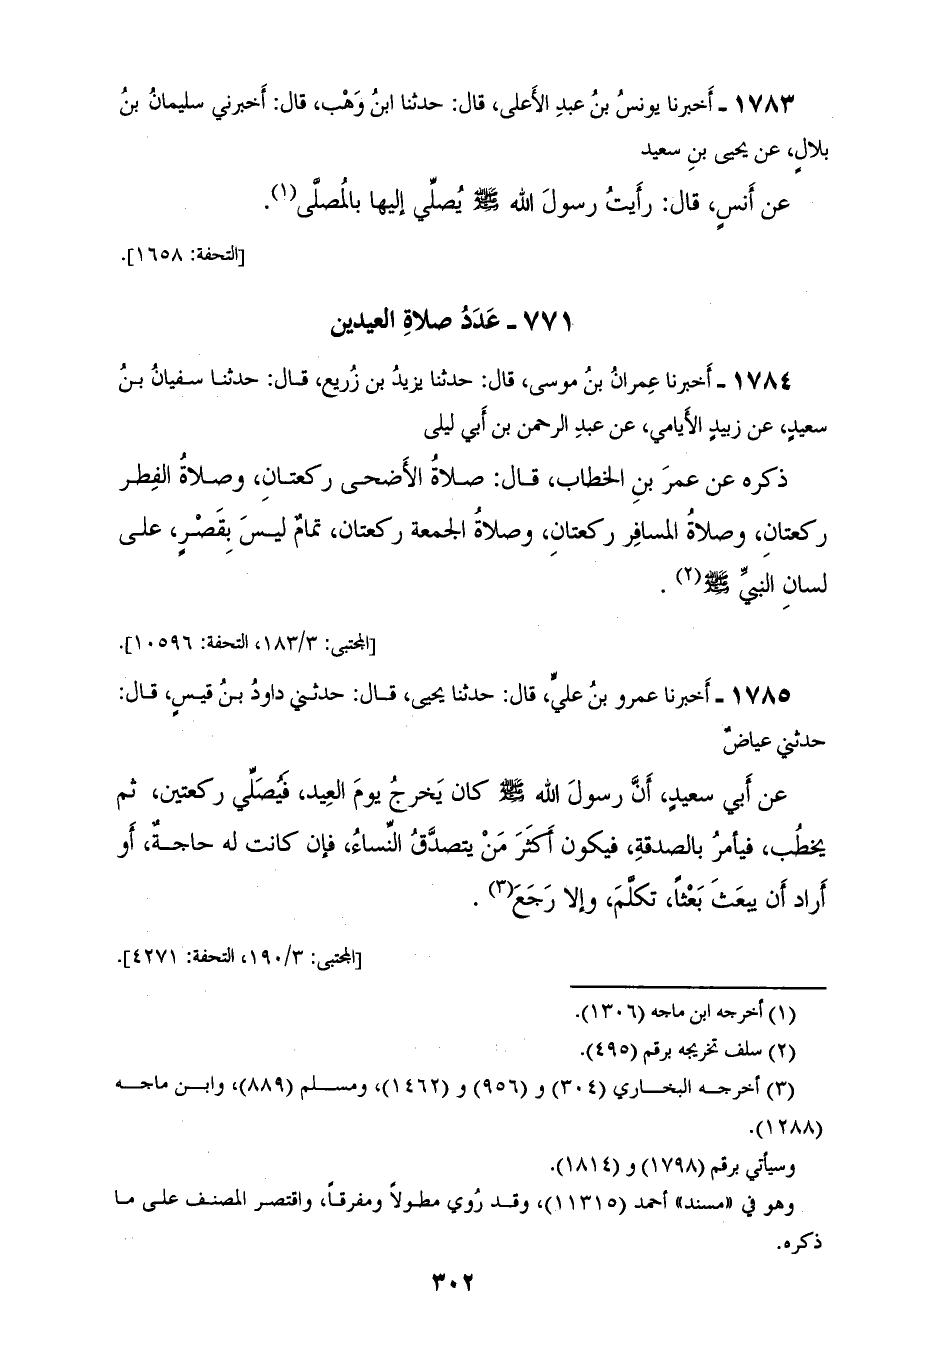 ١٧٨٣ ـ أَخبرنا يونسُ بنُ عبدِ الأَعلى، قال: حدثنا ابنُ وَهْب، قال: أَخبرني سليمانُ بنُ
بلالٍ، عن يحيى بنِ سعيد
عن أَنسٍ، قال: رأَيتُ رسولَ الله ﷺ يُصلِّي إليها بالُمصلَّى(١).
[التحفة: ١٦٥٨].
٧٧١ ـ عَدَدُ صلاةِ العيدين
١٧٨٤ ـ أَخبرنا عِمرانُ بنُ موسى، قال: حدثنا يزيدُ بن زُريع، قال: حدثنا سفيانُ بنُ
سعيدٍ، عن زبيدٍ الأَيامي، عن عبدِ الرحمن بن أَبي ليلى
ذكره عن عمرَ بنِ الخطاب، قال: صلاةُ الأَضحى ركعتانِ، وصلاةُ الفِطر
ركعتانِ، وصلاةُ المسافِر ركعتانِ، وصلاةُ الجمعة ركعتان، تمامٌ ليسَ بِقَصْرٍ، على
لسانِ النبيِّ ﷺ(٢).
[المجتبى: ١٨٣/٣، التحفة: ١٠٥٩٦].
١٧٨٥ ـ أَخبرنا عمرو بنُ عليٍّ، قال: حدثنا يحيى، قال: حدثني داودُ بنُ قيسٍ، قال:
حدثني عياضٌ
عن أَبي سعيدٍ، أَنَّ رسولَ الله ﷺ كان يَخرجُ يومَ العِيد، فَيُصَلِّي ركعتين، ثم
يخطُب، فيأمرُ بالصدقةِ، فيكون أَكثَرَ مَنْ يتصدَّقُ النِّساءُ، فإن كانت له حاجةٌ، أَو
أَراد أَن يبعَثَ بَعْثاً، تكلَّمَ، وإلا رَجَعَ(٣).
[المجتبى: ١٩٠/٣، التحفة: ٤٢٧١].
(١) أخرجه ابن ماجه (١٣٠٦).
(٢) سلف تخريجه برقم (٤٩٥).
(٣) أخرجه البخاري (٣٠٤) و (٩٥٦) و (١٤٦٢)، ومسلم (٨٨٩)، وابن ماجه
(١٢٨٨).
وسيأتي برقم (١٧٩٨) و (١٨١٤).
وهو في «مسند» أحمد (١١٣١٥)، وقد رُوي مطولاً ومفرقاً، واقتصر المصنف على ما
ذكره.
٣٠٢